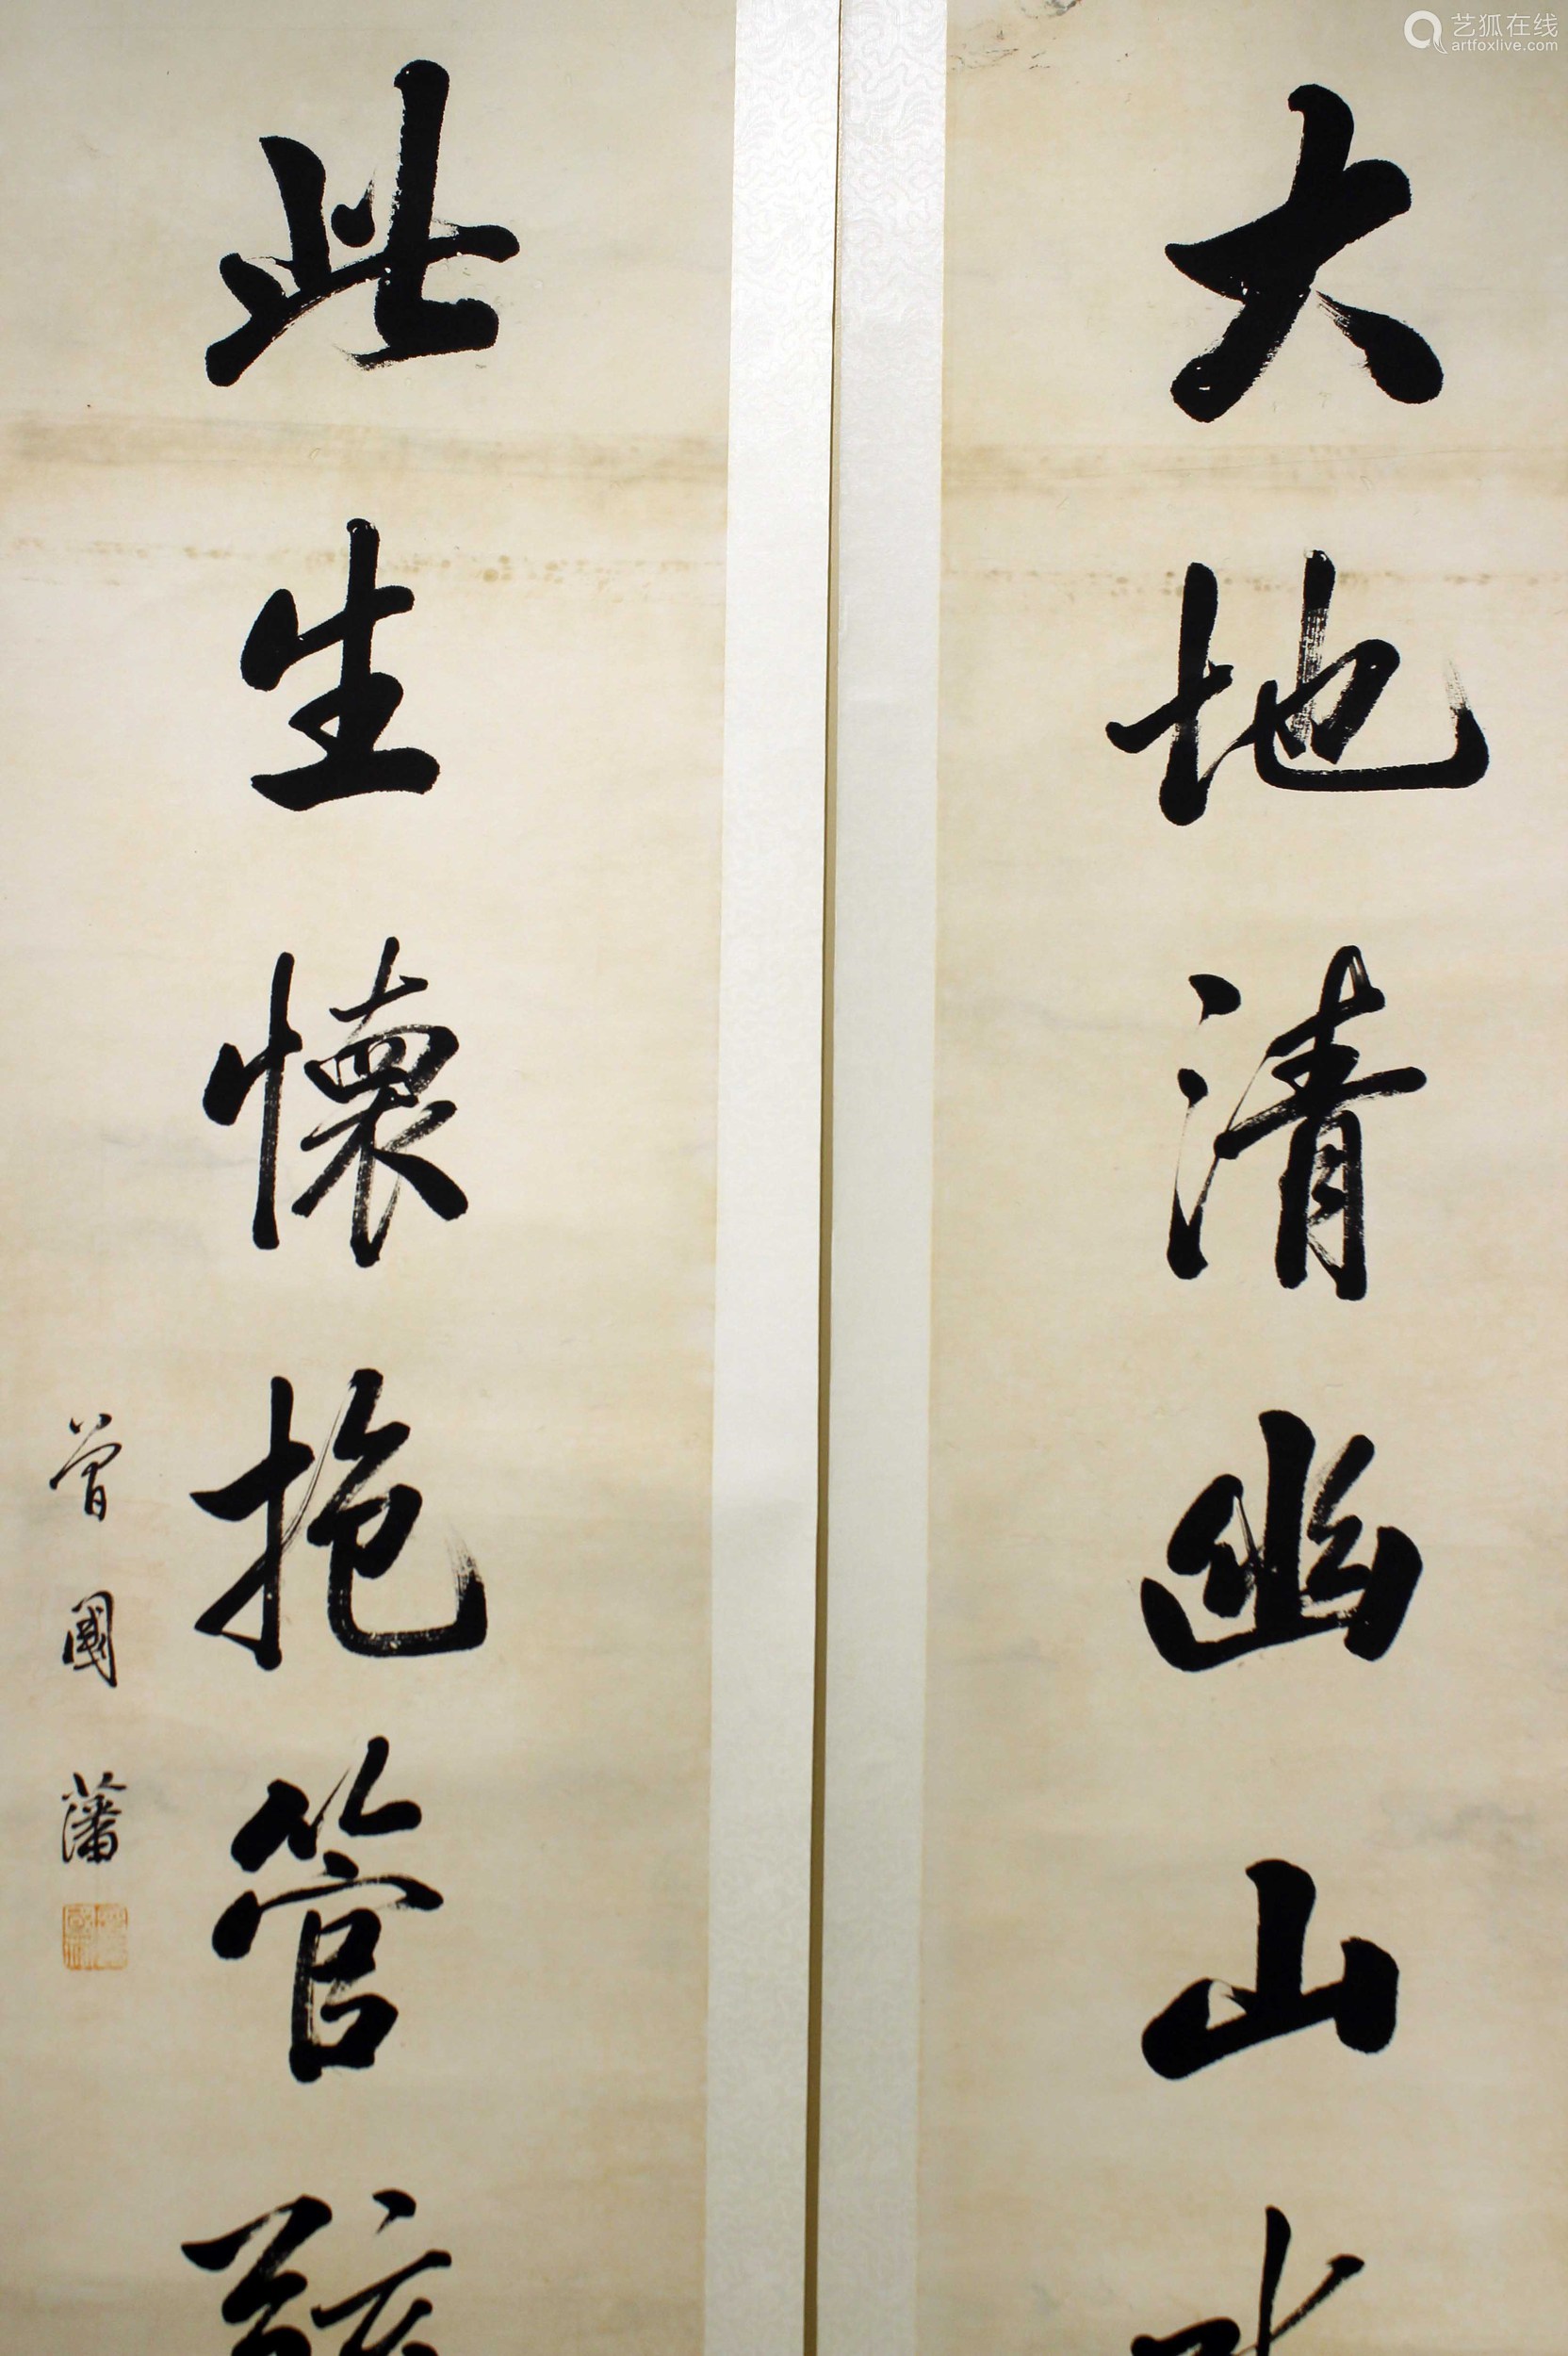 大地清幽山
此生懷抱管
曾國藩
艺狐在线
artfoxlive.com